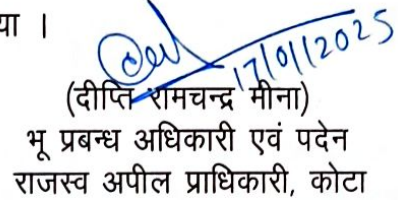 या ।
17/01/2025
(दीप्ति रामचन्द्र मीना)
भू प्रबन्ध अधिकारी एवं पदेन
राजस्व अपील प्राधिकारी, कोटा